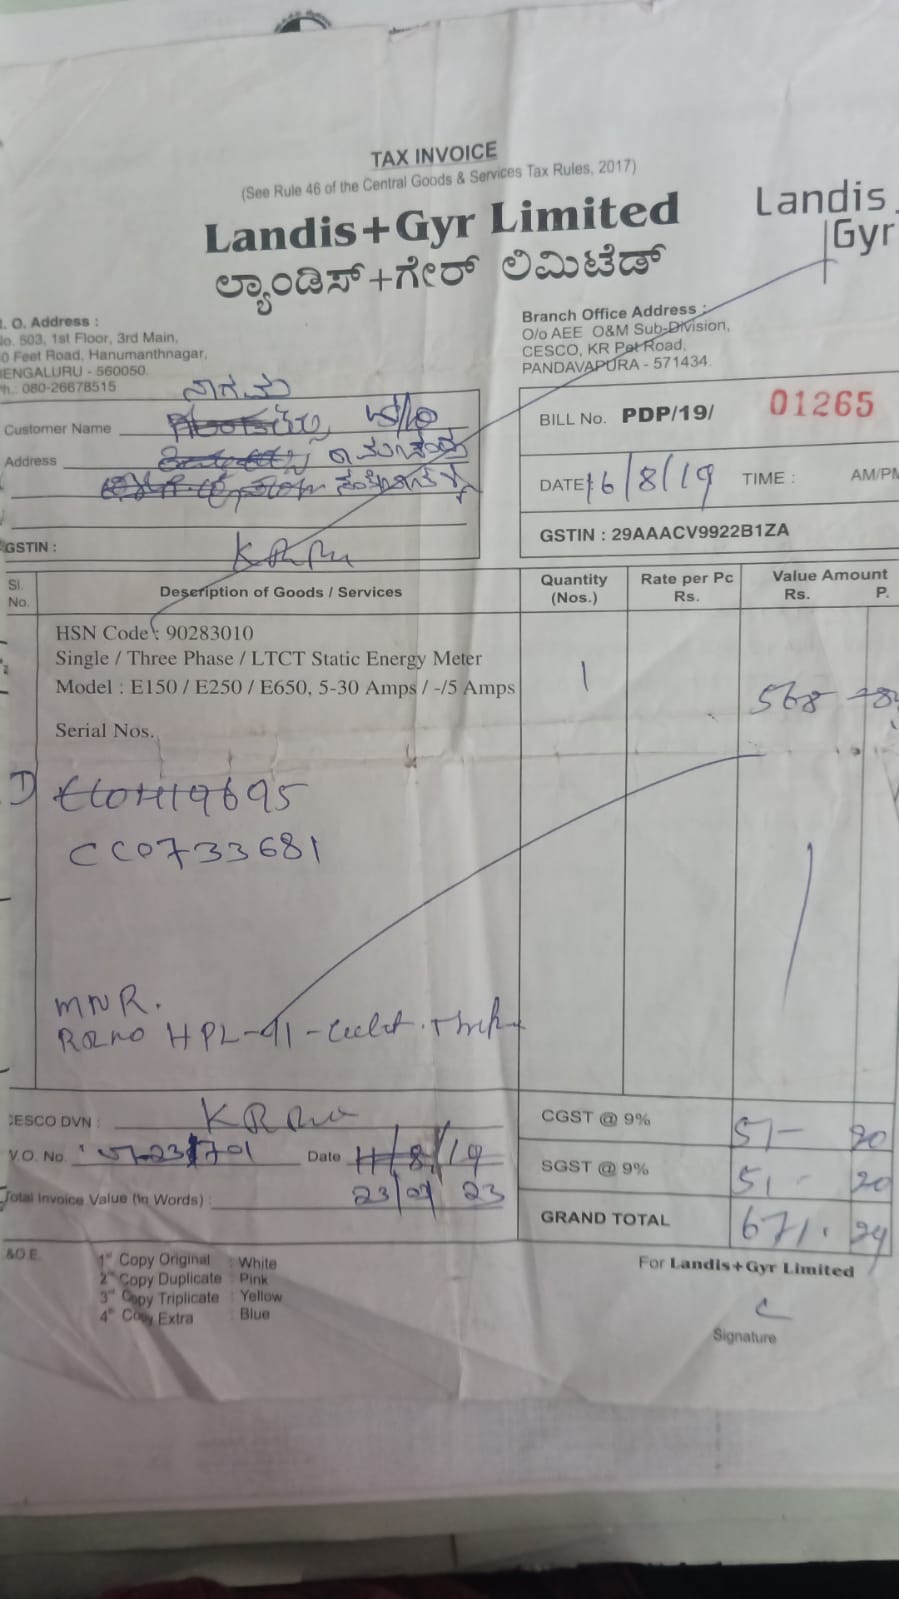 TAX INVOICE
(See Rule 46 of the Central Goods & Services Tax Rules, 2017)
Landis+Gyr Limited
ಲ್ಯಾಂಡಿಸ್+ಗೇರ್ ಲಿಮಿಟೆಡ್
Landis
Gyr
. O. Address :
No. 503, 1st Floor, 3rd Main,
0 Feet Road, Hanumanthnagar,
BENGALURU - 560050.
Ph.: 080-26678515
Branch Office Address :
O/o AEE O&M Sub-Division,
CESCO, KR Pet Road,
PANDAVAPURA - 571434.
Customer Name
Address
GSTIN :
BILL No. PDP/19/ 01265
DATE: 16/8/19 TIME : AM/PM
GSTIN : 29AAACV9922B1ZA
Sl. No. Description of Goods / Services Quantity (Nos.) Rate per Pc Rs. Value Amount Rs. P.
HSN Code : 90283010
Single / Three Phase / LTCT Static Energy Meter 1
Model : E150 / E250 / E650, 5-30 Amps / -/5 Amps 568
Serial Nos.
CC0733681
MNR.
HPL
CESCO DVN :
V.O. No. Date 11/8/19
23/07 23
Total Invoice Value (In Words) :
CGST @ 9% 51- 20
SGST @ 9% 51- 20
GRAND TOTAL 671. 24
E&O.E.
1st Copy Original : White
2nd Copy Duplicate : Pink
3rd Copy Triplicate : Yellow
4th Copy Extra : Blue
For Landis+Gyr Limited
Signature